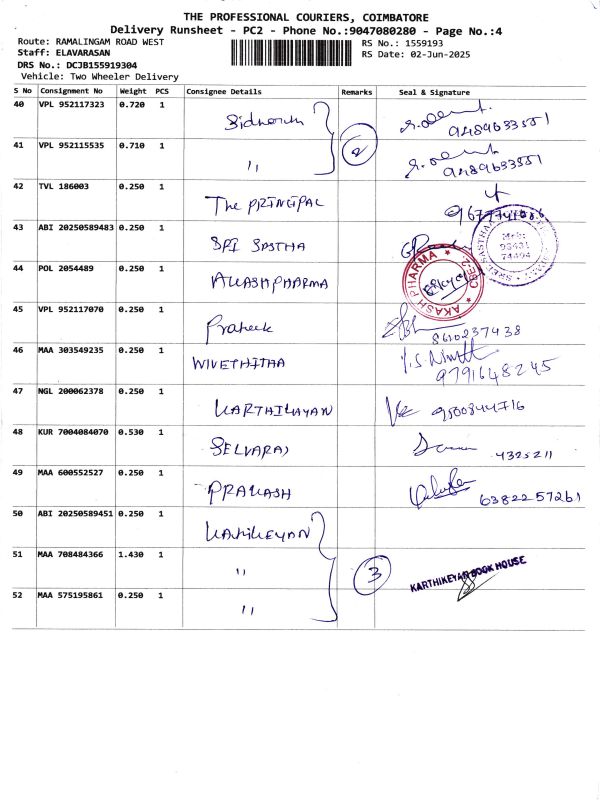 THE PROFESSIONAL COURIERS, COIMBATORE
Delivery Runsheet - PC2 - Phone No.:9047080280 - Page No.:4
Route: RAMALINGAM ROAD WEST
RS No.: 1559193
Staff: ELAVARASAN
RS Date: 02-Jun-2025
DRS No.: DCJB155919304
Vehicle: Two Wheeler Delivery
S No Consignment No Weight PCS Consignee Details Remarks Seal & Signature
40 VPL 952117323 0.720 1 9489633551
41 VPL 952115535 0.710 1 ,, 2 9489633551
42 TVL 186003 0.250 1 The PRINCIPAL
43 ABI 20250589483 0.250 1 SRI SASTHA Mrb: 93431 74494
44 POL 2054489 0.250 1 AKASH PHARMA AKASH PHARMA
45 VPL 952117070 0.250 1 Pratheek 8610237438
46 MAA 303549235 0.250 1 NIVETHITHA 9791648245
47 NGL 200062378 0.250 1 KARTHIKAYAN 9500844716
48 KUR 7004084070 0.530 1 SELVARAJ 4325211
49 MAA 600552527 0.250 1 PRAKASH 6382257261
50 ABI 20250589451 0.250 1
51 MAA 708484366 1.430 1 ,, 3 KARTHIKEYAN BOOK HOUSE
52 MAA 575195861 0.250 1 ,,